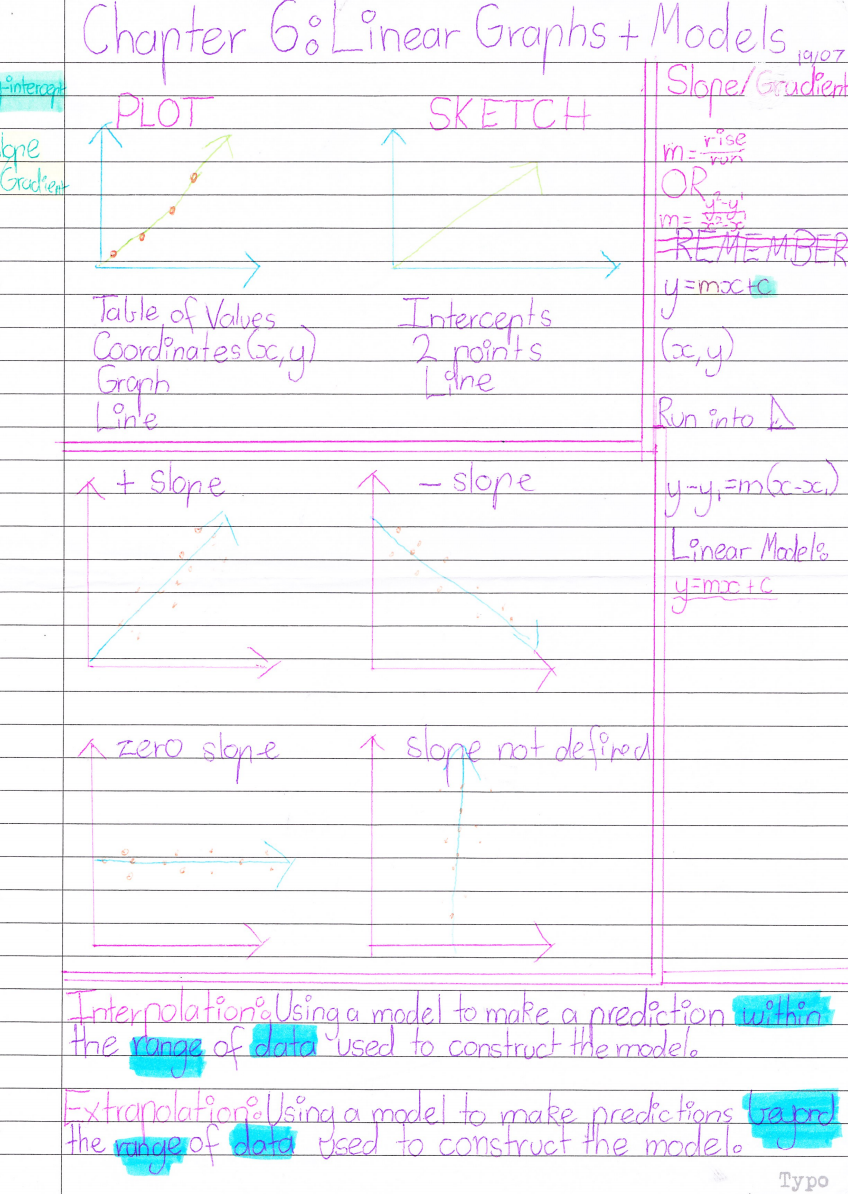 Chapter 6: Linear Graphs + Models
19/07
-intercept
lope
Gradient
PLOT
SKETCH
Table of Values
Coordinates (x, y)
Graph
Line
Intercepts
2 points
Line
Slope/Gradient
m = rise/run
OR
m = y²-y¹/x²-x¹
REMEMBER
y=mx+c
(x, y)
Run into
y-y₁=m(x-x₁)
Linear Model:
y=mx+c
+ slope
- slope
zero slope
slope not defined
Interpolation: Using a model to make a prediction within
the range of data used to construct the model.
Extrapolation: Using a model to make predictions beyond
the range of data used to construct the model.
Typo